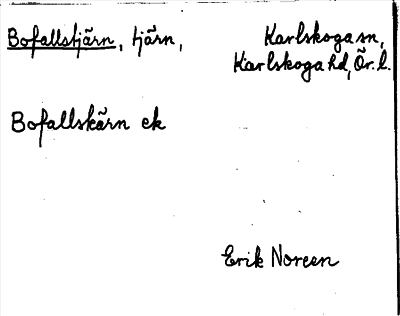 Bofallstjärn, tjärn, Karlskoga sn,
Karlskoga hd, Ör. l.
Bofallskärn ek
Erik Noreen